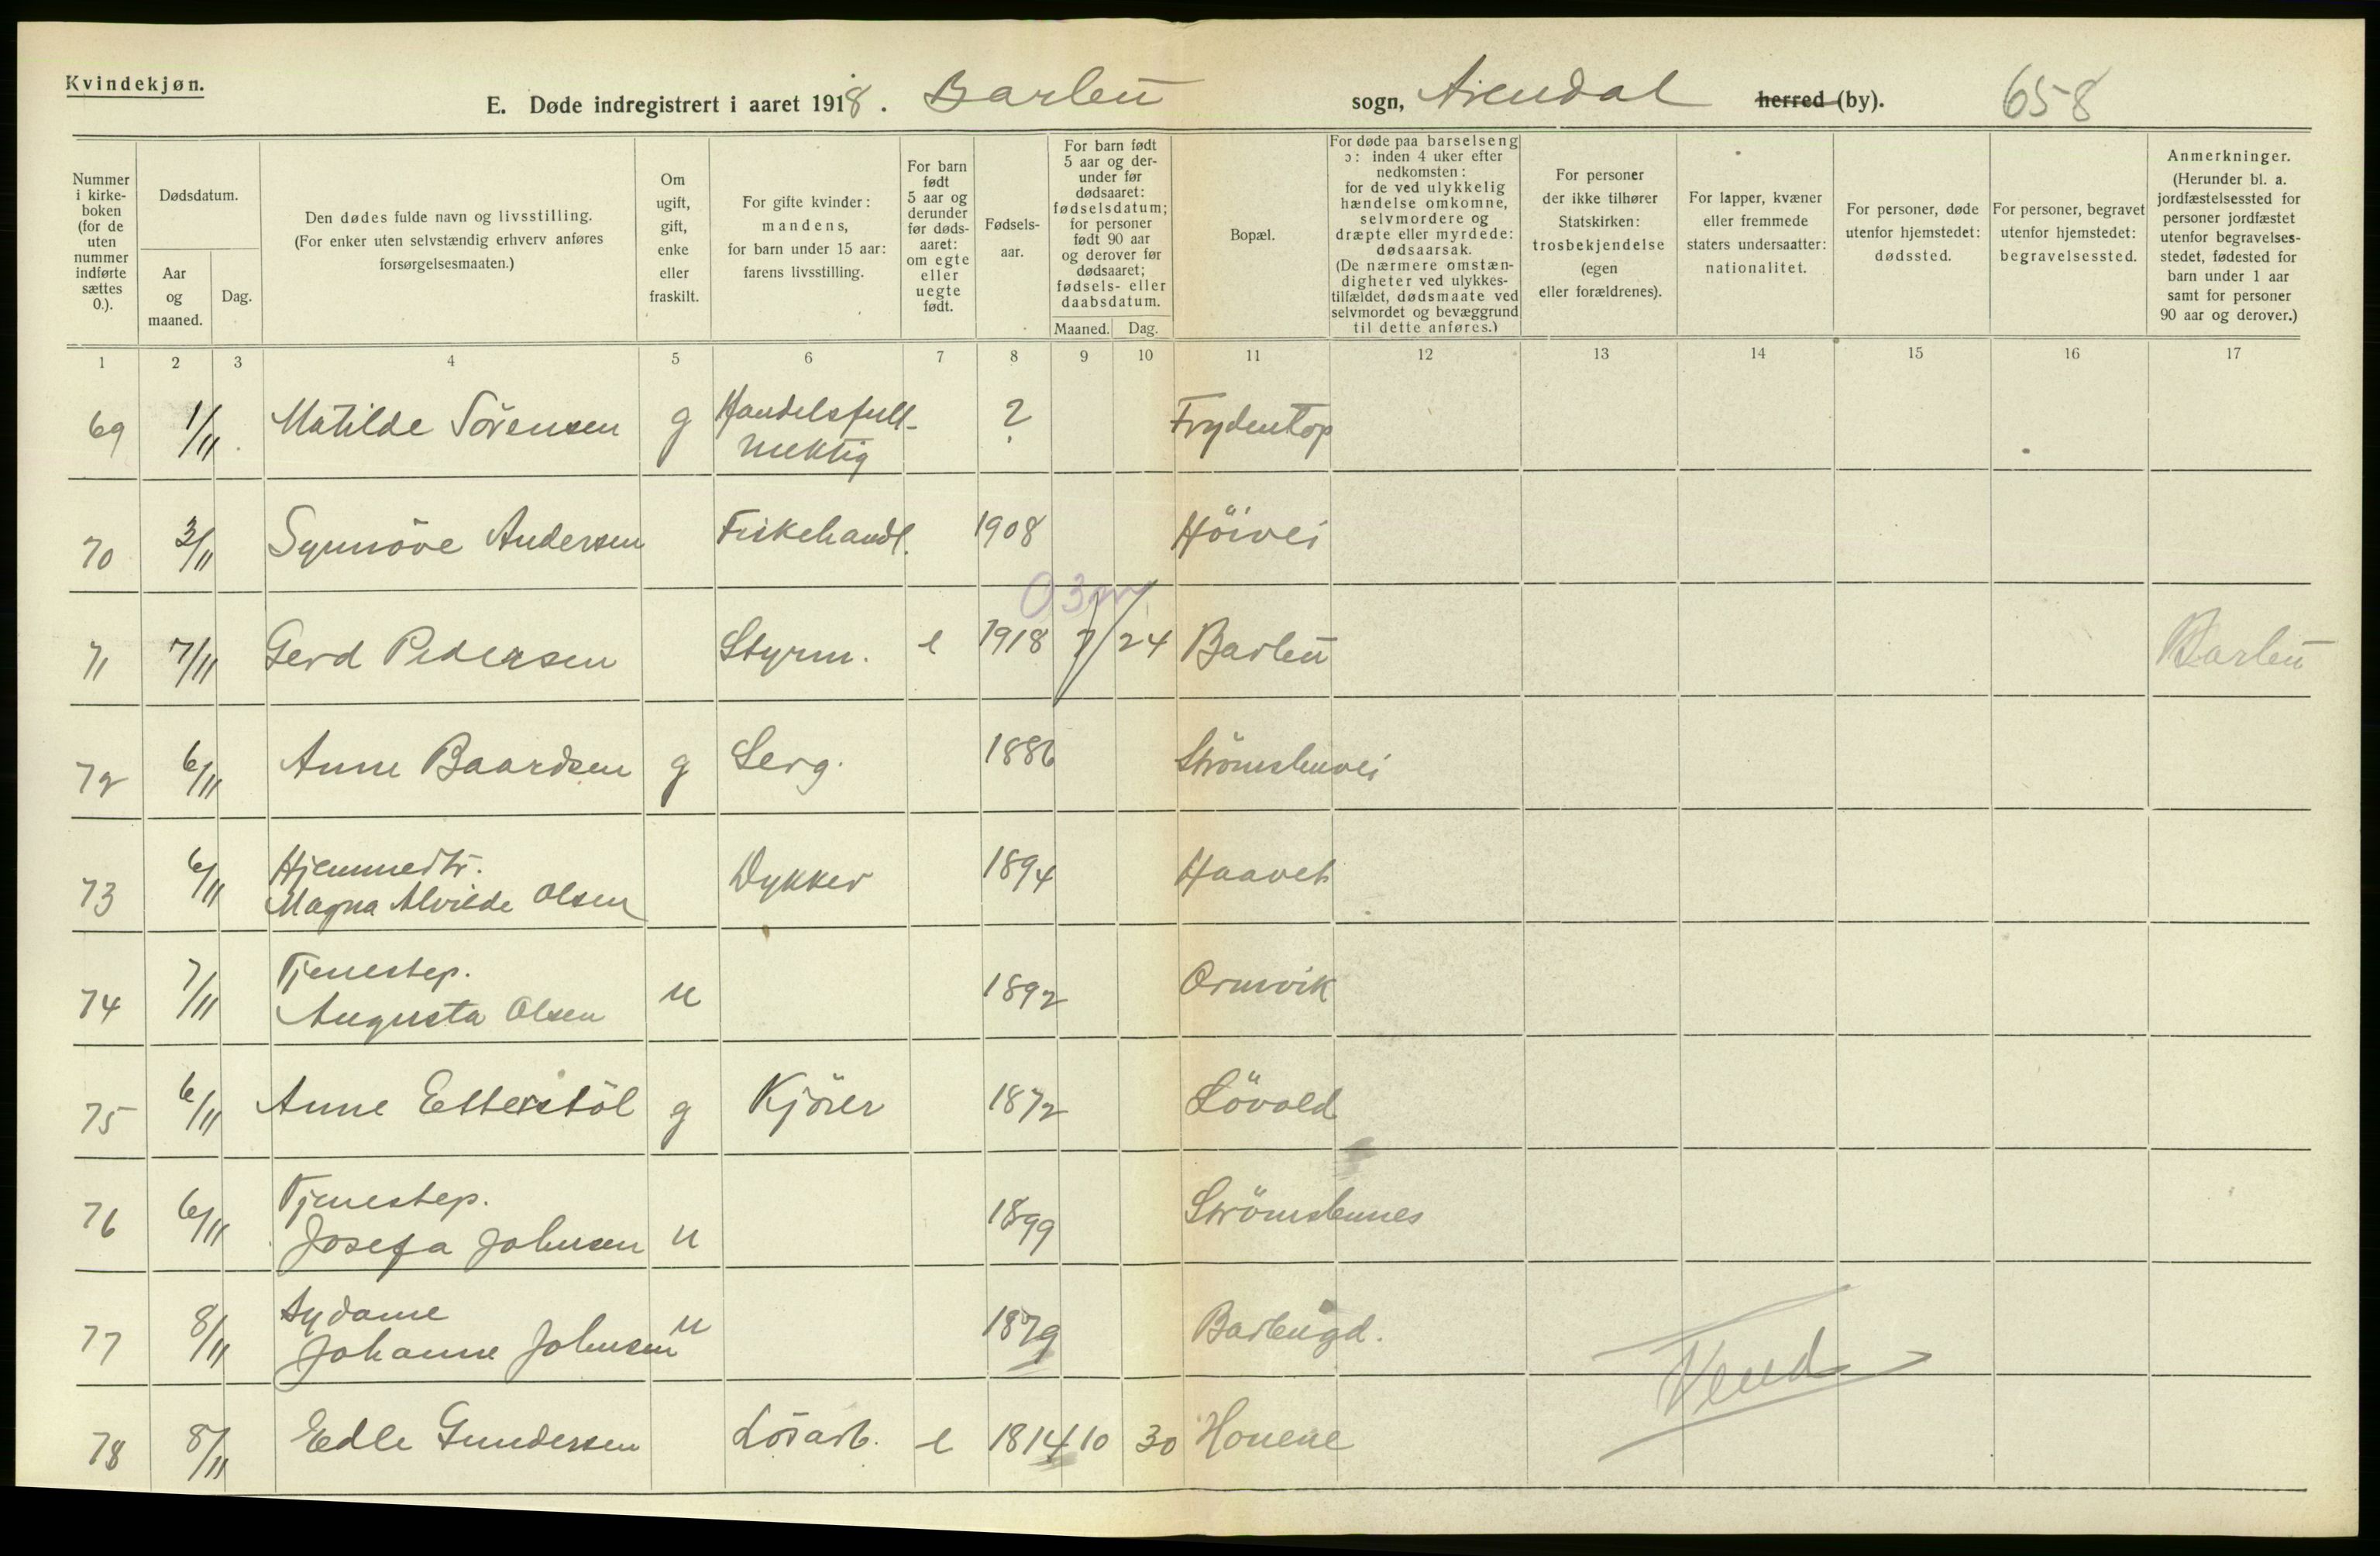 Kvindekjøn.
E. Døde indregistrert i aaret 1918. Barbu sogn, Arendal herred (by). 658
Nummer i kirke-boken (for de uten nummer indførte sættes 0.).
Dødsdatum.
Aar og maaned.
Dag.
Den dødes fulde navn og livsstilling.
(For enker uten selvstændig erhverv anføres forsørgelsesmaaten.)
Om ugift, gift, enke eller fraskilt.
For gifte kvinder: mandens, for barn under 15 aar: farens livsstilling.
For barn født 5 aar og derunder før døds-aaret: om egte eller uegte født.
Fødsels-aar.
For barn født 5 aar og der-under før dødsaaret: fødselsdatum; for personer født 90 aar og derover før dødsaaret; fødsels- eller daabsdatum.
Maaned. Dag.
Bopæl.
For døde paa barselseng ɔ: inden 4 uker efter nedkomsten: for de ved ulykkelig hændelse omkomne, selvmordere og dræpte eller myrdede: dødsaarsak.
(De nærmere omstæn-digheter ved ulykkes-tilfældet, dødsmaate ved selvmordet og bevæggrund til dette anføres.)
For personer der ikke tilhører Statskirken: trosbekjendelse (egen eller forældrenes).
For lapper, kvæner eller fremmede staters undersaatter: nationalitet.
For personer, døde utenfor hjemstedet: dødssted.
For personer, begravet utenfor hjemstedet: begravelsessted.
Anmerkninger.
(Herunder bl. a. jordfæstelsessted for personer jordfæstet utenfor begravelses-stedet, fødested for barn under 1 aar samt for personer 90 aar og derover.)
1 2 3 4 5 6 7 8 9 10 11 12 13 14 15 16 17
69 1/11 Matilde Sörensen g Handelsfull- ? Frydentop
mektig
70 3/11 Synnöve Andersen Fiskehandl. 1908 Höivei
0 3 m
71 7/11 Gerd Pedersen Styrm. e 1918 7/24 Barbu Barbu
72 6/11 Anne Baardsen g Serg. 1886 Strömsbuvei
73 6/11 Hjemmedtr. Dykker 1894 Haavet
Magna Alvilde Olsen
74 7/11 Tjenestep. 1892 Ormvik
Augusta Olsen u
75 6/11 Anne Etterstöl g Kjörer 1872 Lövold
76 6/11 Tjenestep. 1899 Strömsbunes
Josefa Johnsen u
77 8/11 Sydame u 1879 Barbugd.
Johanne Johnsen
Vend
78 8/11 Edle Gundersen Lösarb. e 1814 10 30 Houene